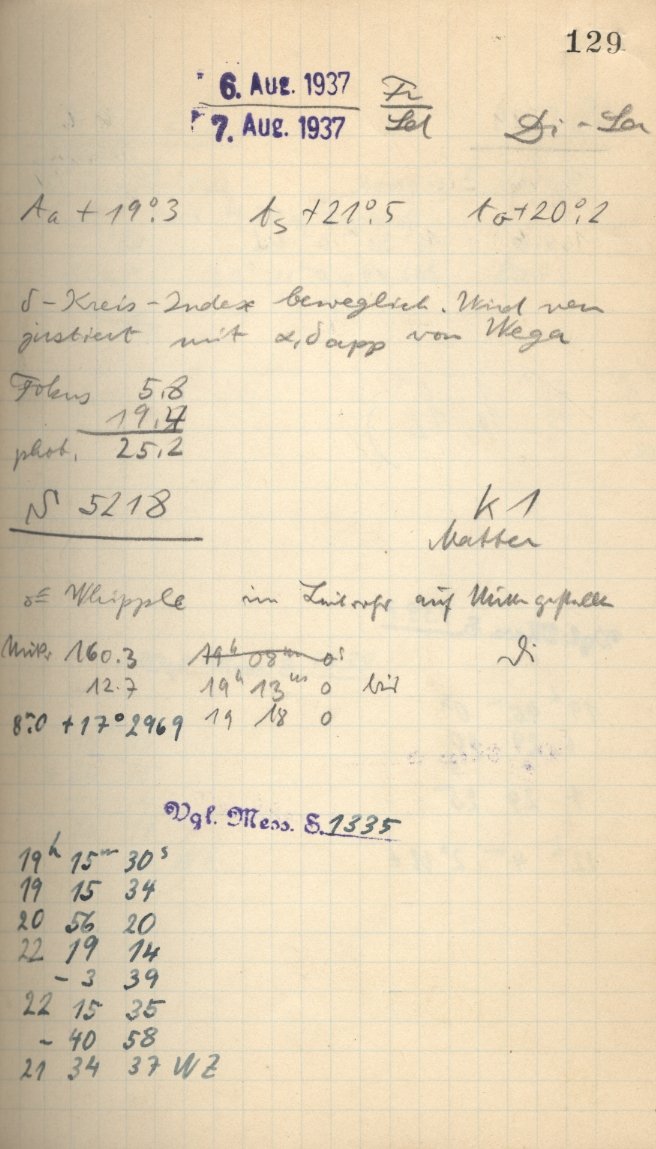 129
6. Aug. 1937 Fr
7. Aug. 1937 Di - La
Aa + 19°.3 ts + 21°.5 tG + 20°.2
δ-Kreis-Index beweglich. Wird neu
justiert mit α, δ app von Wega
Fokus 5.8
19.4
phot. 25.2
S 5218 K 1
Matter
Whipple im Leitrohr auf Mitte gestellt
Mikr 160.3 19h 08m 0s Di
12.7 19h 13m 0 bis
8m.0 +17° 2969 19 18 0
Vgl. Mess. S. 1335
19h 15m 30s
19 15 34
20 56 20
22 19 14
- 3 39
22 15 35
- 40 58
21 34 37 WZ